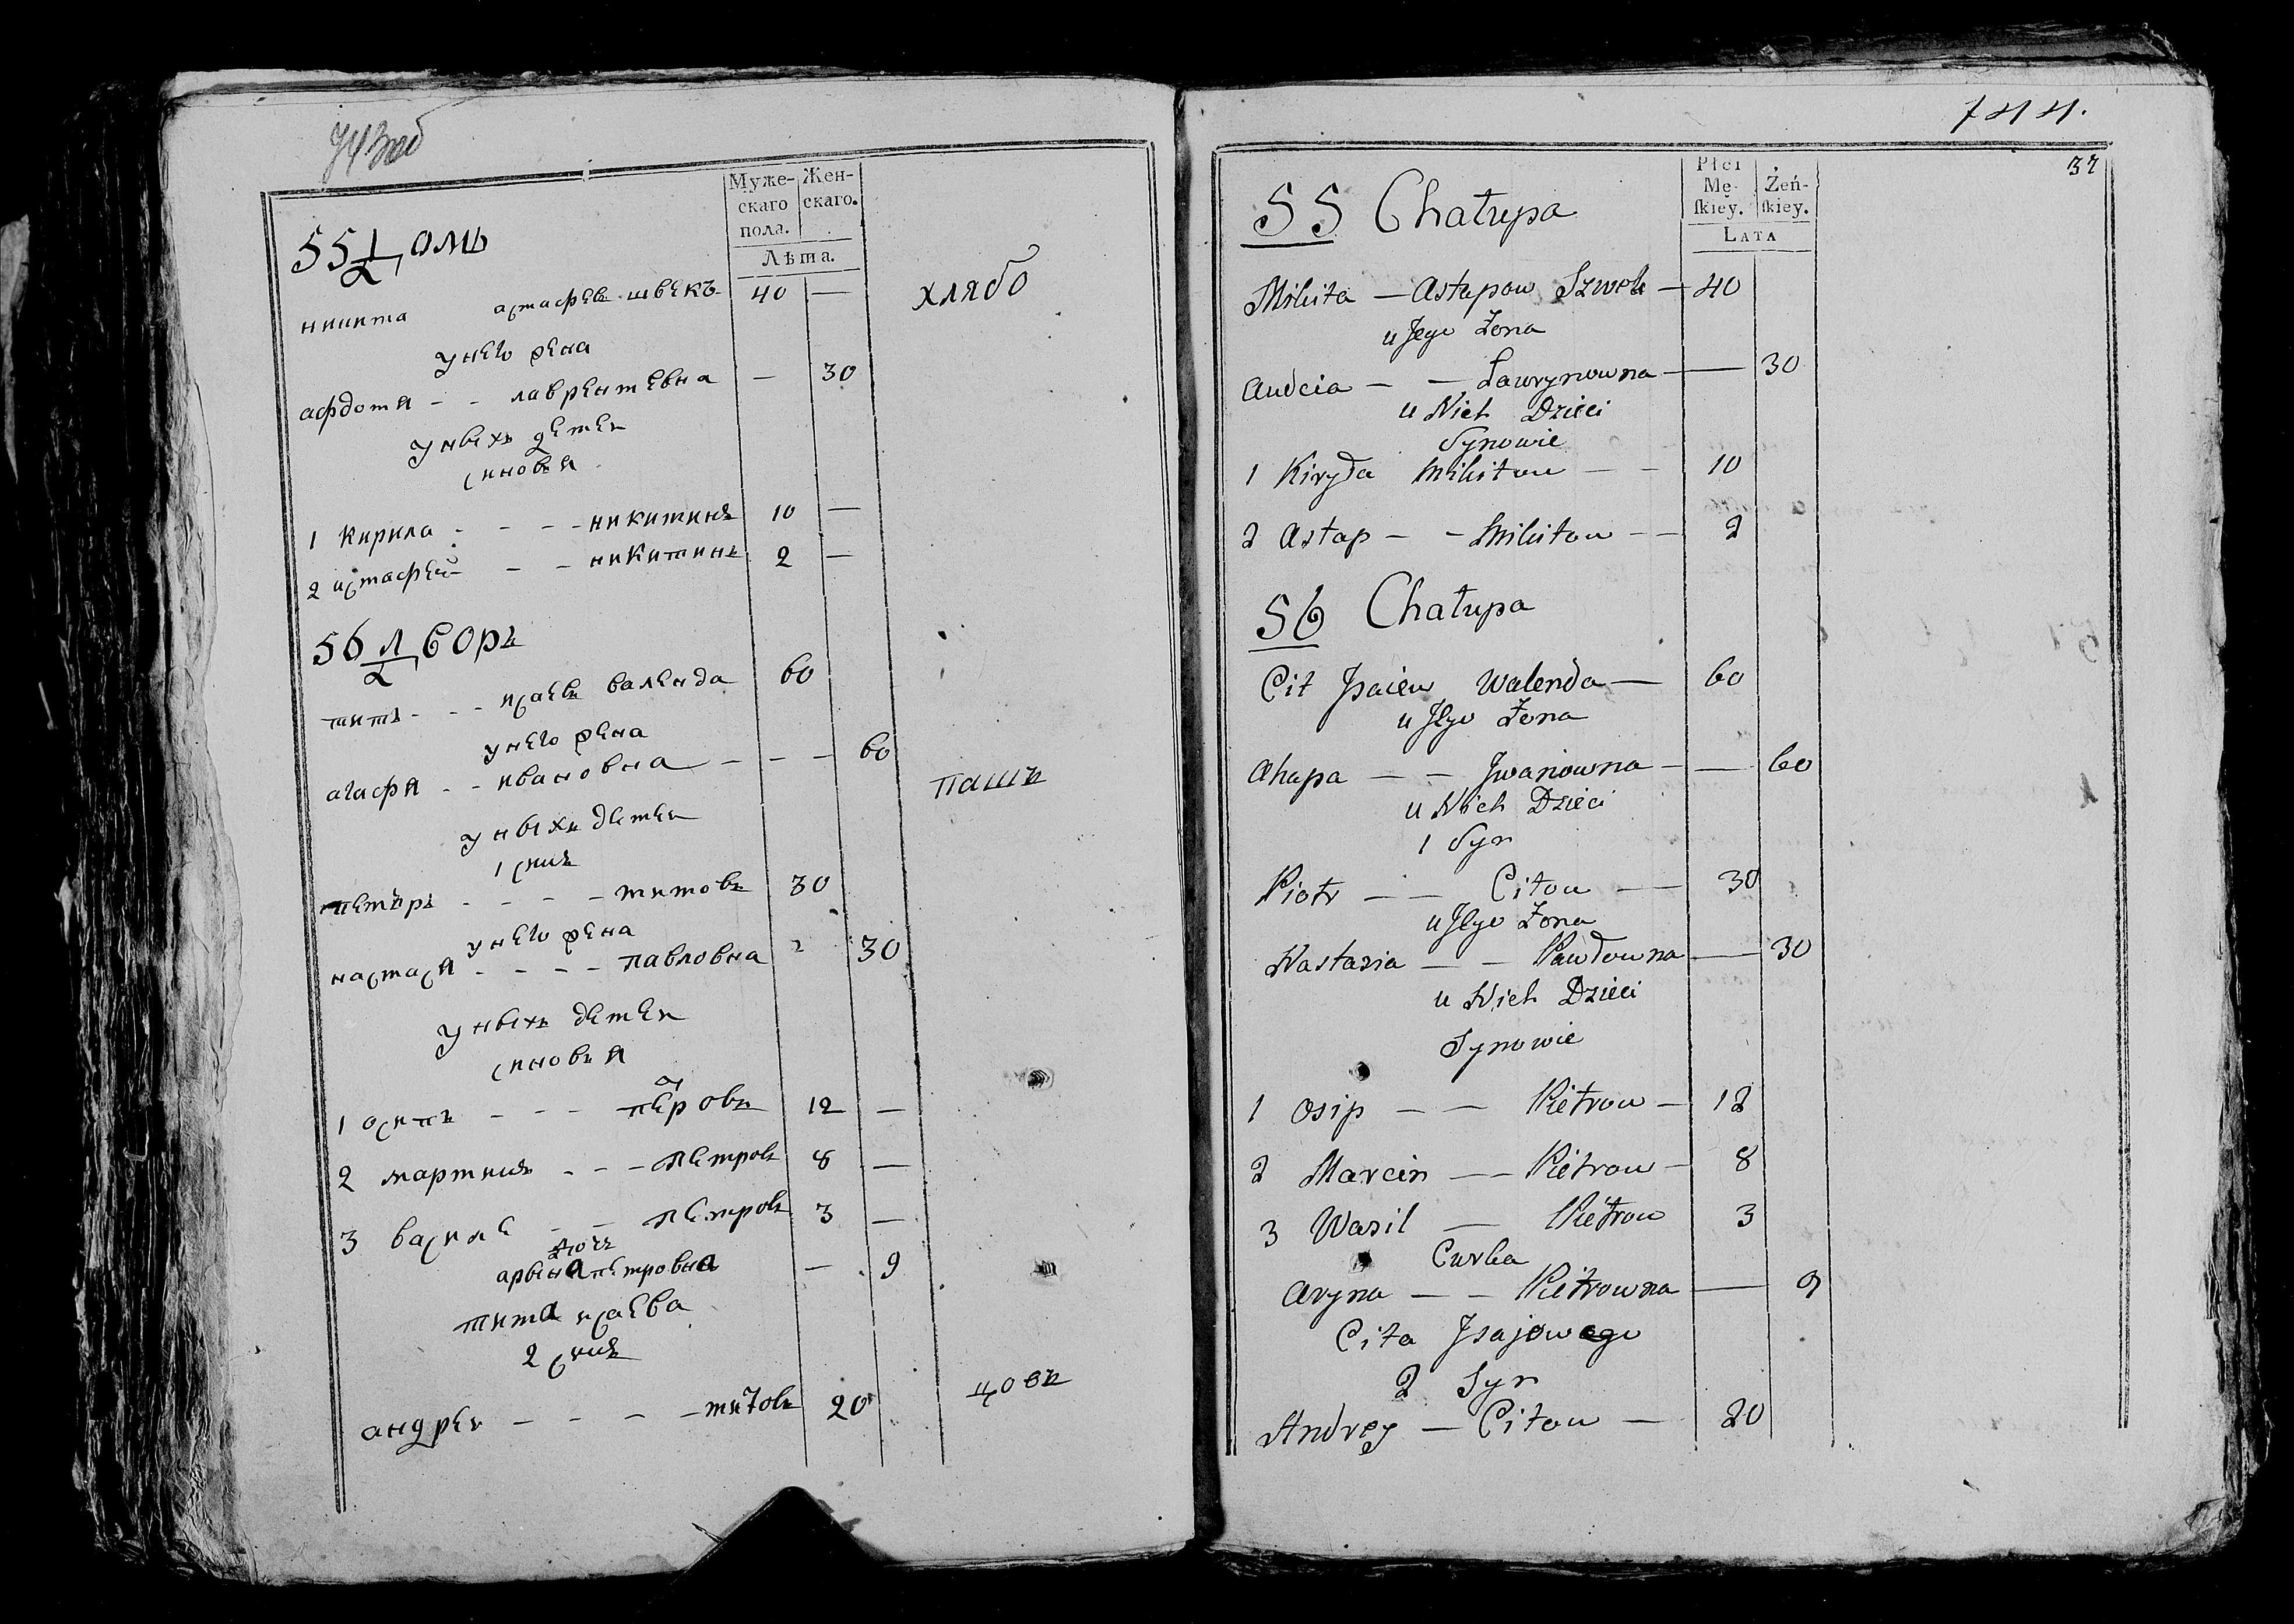 743 об
Муже-
скаго
пола.
Жен-
скаго.
Лѣта.
55 Домъ
никита астафьевъ швекъ 40 —
хлябо
унего жена
афдотя - - лаврентевна — 30
унвхъ детеи
синовя
1 Кирила - - - - никитинъ 10 —
2 истафеи - - никитинъ 2 —
56 Дворъ
титъ - - - исаевъ валенда 60
унего жена
агафя - - ивановна - - - 60
пашъ
унвхъ детеи
1 синъ
петъръ - - - - титовъ 30
унего жена
настася - - - - павловна 30
унвхъ детеи
синовя
1 осипъ - - - петровъ 12 —
2 мартинъ - - - петровъ 8 —
3 василе - - петровъ 3 —
дочъ
арына петровна — 9
тита исаева
2 синъ
андреи - - - - титовъ 20
цовъ
744.
32
Płci
Mę-
skiey.
Żeń-
skiey.
Lata
55 Chałupa
Mikita — Astapow Szwek — 40
u Jego Żona
Audcia — — Ławrynowna — — 30
u Nich Dzieci
Synowie
1 Kiryła Mikitow — — 10
2 Astap — — Mikitow — — 2
56 Chałupa
Cit Jsaiew Walenda — 60
u Jego Żona
Ahapa — — Jwanowna — — 60
u Nich Dzieci
1 Syn
Piotr — — Citow — — 30
u Jego Żona
Nastazia — — Pawłowna — 30
u Nich Dzieci
Synowie
1 Osip — — Pietrow — 12
2 Marcin — — Pietrow — 8
3 Wasil — Pietrow 3
Curka
Aryna — — Pietrowna — 9
Cita Jsajowego
2 Syn
Andrey — Citow — 20